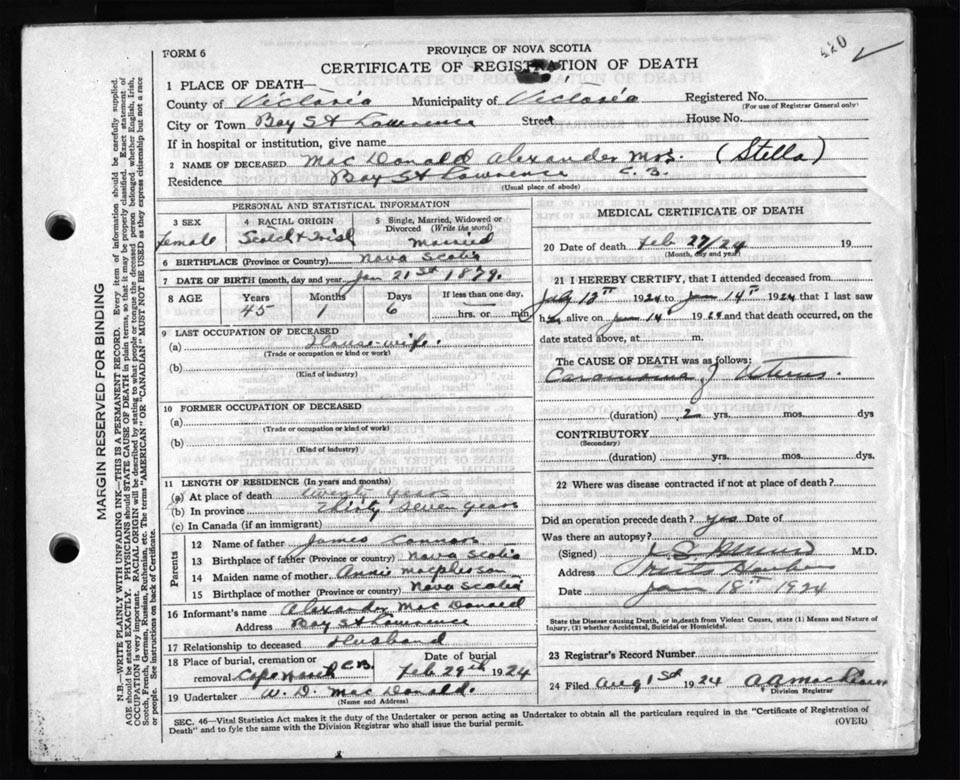 520
FORM 6
PROVINCE OF NOVA SCOTIA
CERTIFICATE OF REGISTRATION OF DEATH
1 PLACE OF DEATH—
County of Victoria Municipality of Victoria Registered No.
(For use of Registrar General only)
City or Town Bay St Lawrence Street House No.
If in hospital or institution, give name
2 NAME OF DECEASED Mac Donald Alexander Mrs. (Stella)
Residence Bay St Lawrence C. B.
(Usual place of abode)
PERSONAL AND STATISTICAL INFORMATION
3 SEX 4 RACIAL ORIGIN 5 Single, Married, Widowed or Divorced (Write the word)
female Scotch & Irish Married
6 BIRTHPLACE (Province or Country) Nova Scotia
7 DATE OF BIRTH (month, day and year) Jan 21st 1879.
8 AGE Years Months Days If less than one day,
45 1 6 hrs. or min
9 LAST OCCUPATION OF DECEASED
(a) House-wife.
(Trade or occupation or kind or work)
(b)
(Kind of industry)
10 FORMER OCCUPATION OF DECEASED
(a)
(Trade or occupation or kind of work)
(b)
(Kind of industry)
11 LENGTH OF RESIDENCE (In years and months)
(a) At place of death twenty years
(b) In province Thirty seven years
(c) In Canada (if an immigrant)
Parents
12 Name of father James Connors
13 Birthplace of father (Province or country) Nova Scotia
14 Maiden name of mother Annie Macpherson
15 Birthplace of mother (Province or country) Nova Scotia
16 Informant's name Alexander Mac Donald
Address Bay St Lawrence
17 Relationship to deceased Husband
18 Place of burial, cremation or removal Cape North C.B. Date of burial Feb 29th 1924
19 Undertaker W. D. Mac Donald.
(Name and Address)
MEDICAL CERTIFICATE OF DEATH
20 Date of death Feb 27/24 19
(Month, day and year)
21 I HEREBY CERTIFY, that I attended deceased from
July 12th 1924 to Jan 14th 1924 that I last saw
h alive on Jan 14 1924 and that death occurred, on the
date stated above, at m.
The CAUSE OF DEATH was as follows:
Carcinoma of Uterus.
(duration) 2 yrs. mos. dys
CONTRIBUTORY
(Secondary)
(duration) yrs. mos. dys.
22 Where was disease contracted if not at place of death?
Did an operation precede death? yes Date of
Was there an autopsy?
(Signed) M.D.
Address Harbour
Date Jan 18th 1924
State the Disease causing Death, or in death from Violent Causes, state (1) Means and Nature of Injury, (2) whether Accidental, Suicidal or Homicidal.
23 Registrar's Record Number
24 Filed Aug 1st 1924
Division Registrar
SEC. 46—Vital Statistics Act makes it the duty of the Undertaker or person acting as Undertaker to obtain all the particulars required in the "Certificate of Registration of
Death" and to fyle the same with the Division Registrar who shall issue the burial permit. (OVER)
MARGIN RESERVED FOR BINDING
N.B.—WRITE PLAINLY WITH UNFADING INK—THIS IS A PERMANENT RECORD. Every item of information should be carefully supplied.
AGE should be stated EXACTLY. PHYSICIANS should STATE CAUSE OF DEATH in plain terms, so that it may be properly classified. Exact statement of
OCCUPATION is very important. RACIAL ORIGIN will be described by stating to what people or tongue the deceased person belonged whether English, Irish,
Scotch, French, German, Russian, Ruthenian, etc. The terms "AMERICAN" OR "CANADIAN" MUST NOT BE USED as they express citizenship but not a race
or people. See instructions on back of Certificate.